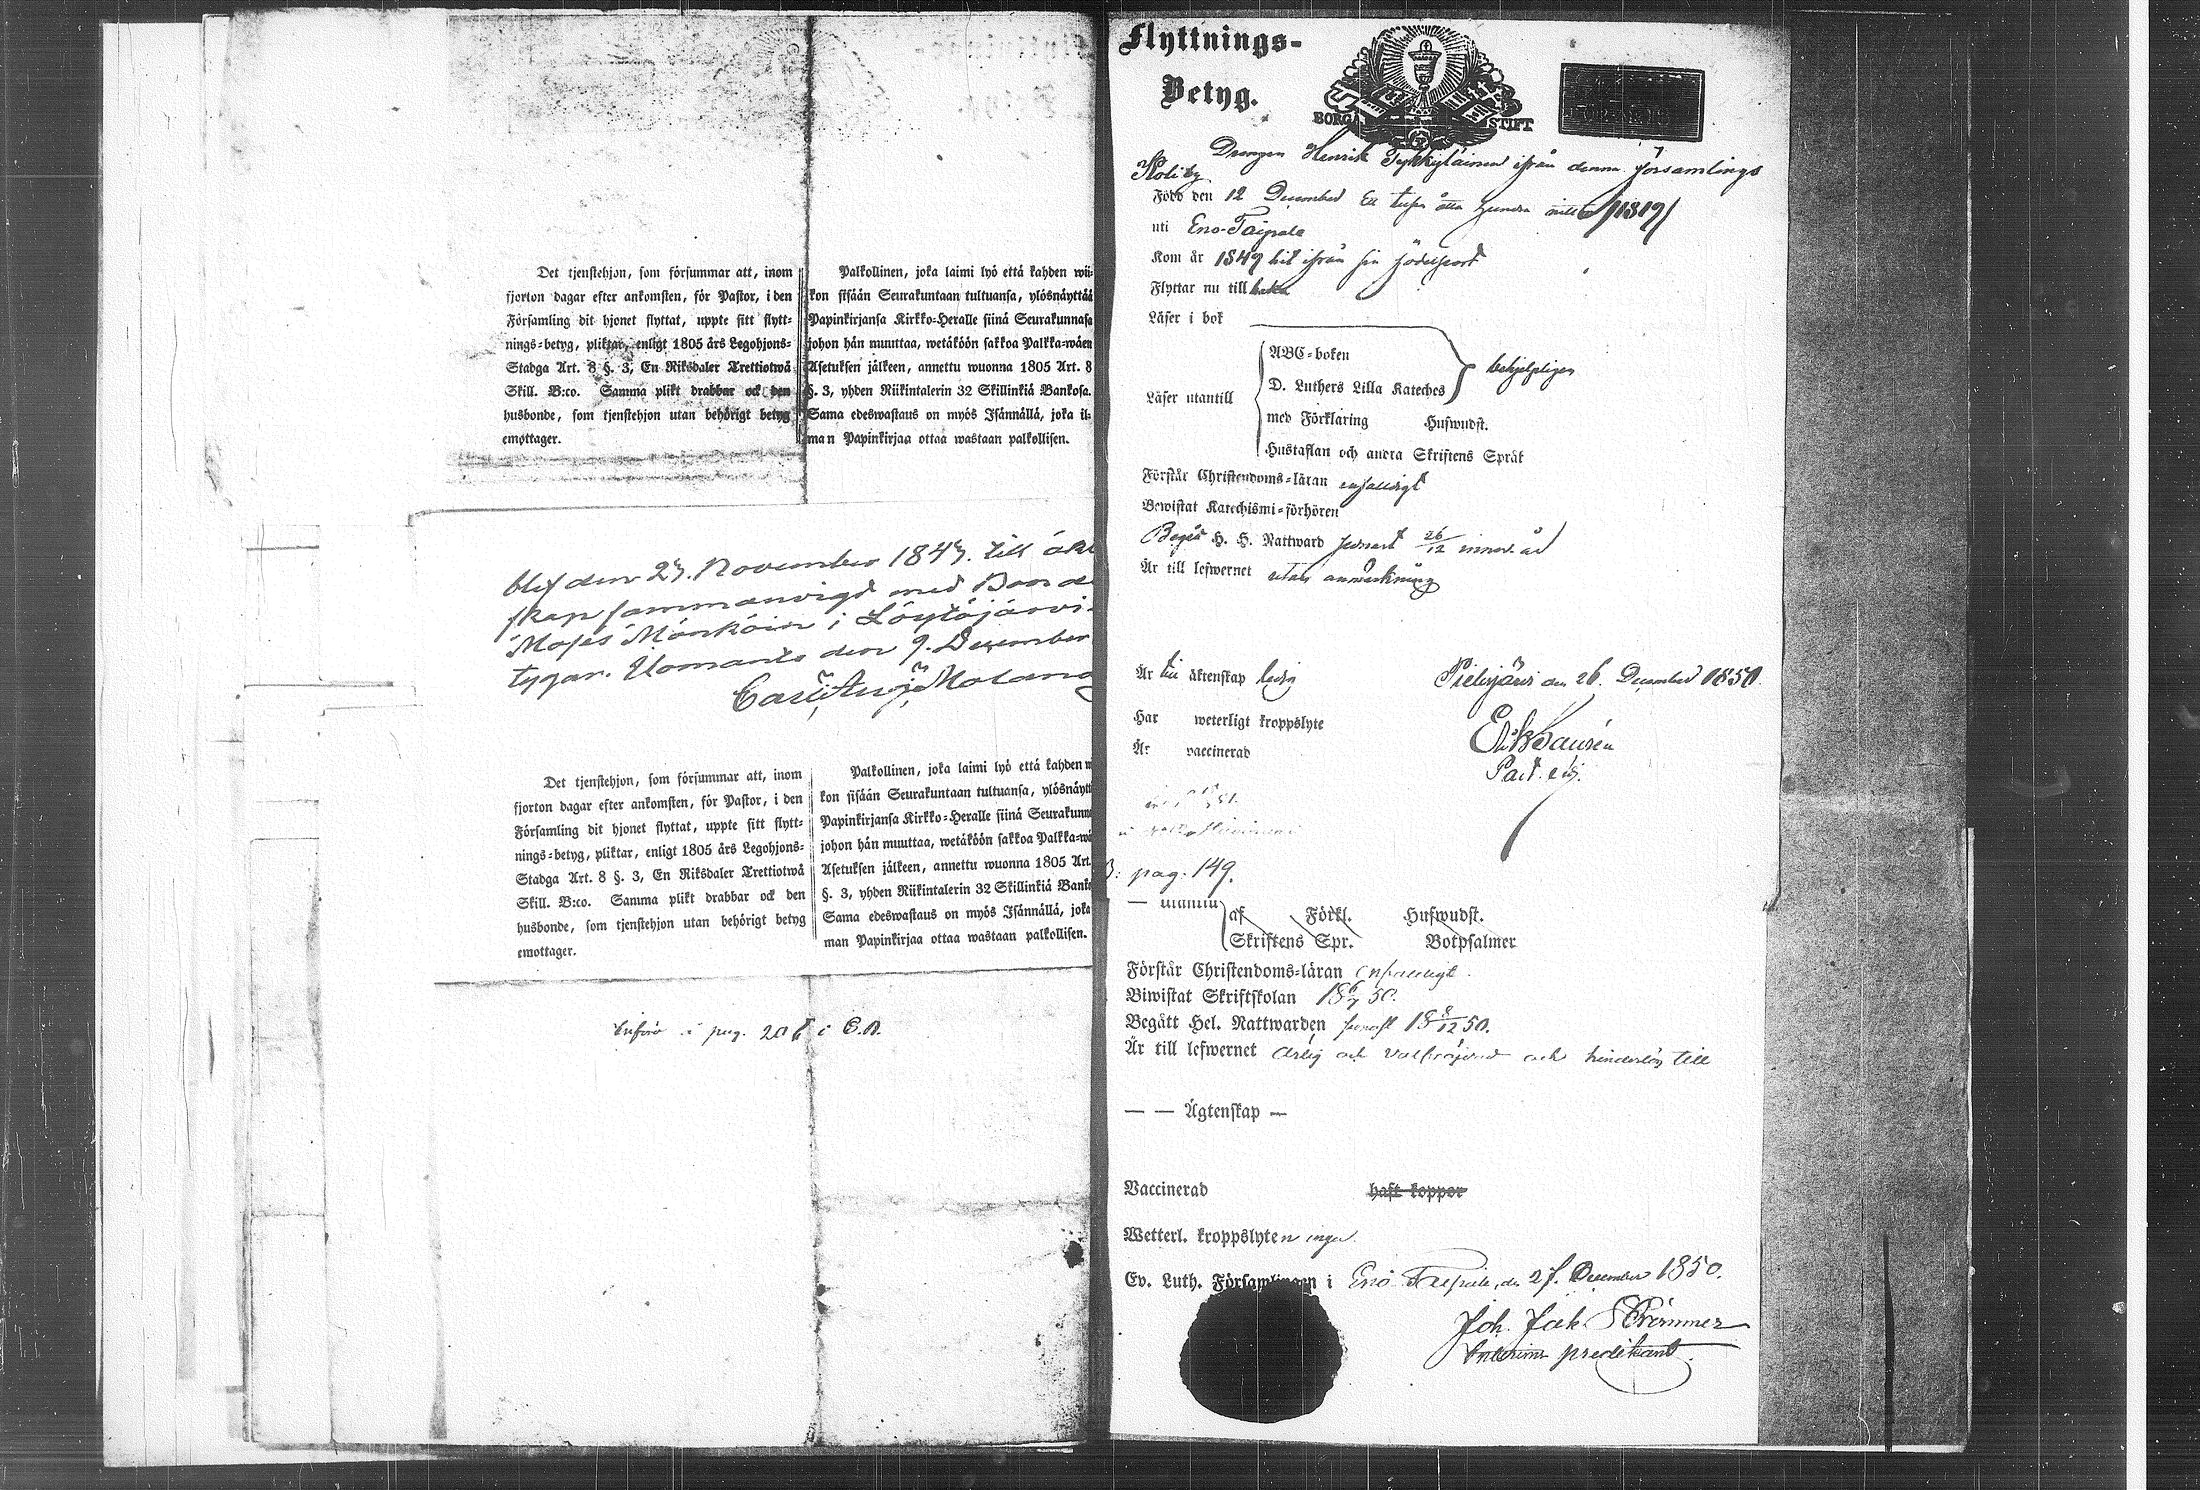 Det tjenstehjon, som försummar att, inom
fjorton dagar efter ankomsten, för Pastor, i den
Församling dit hjonet flyttat, uppte sitt flytt-
nings-betyg, pliktar, enligt 1805 års Legohjons-
Stadga Art. 8 §. 3, En Riksdaler Trettiotwå
Skill. B:co. Samma plikt drabbar ock den
husbonde, som tjenstehjon utan behörigt betyg
emottager.
Palkollinen, joka laimi lyö että kahden wii-
kon sisään Seurakuntaan tultuansa, ylösnäyttää
Papinkirjansa Kirkko-Heralle siinä Seurakunnasa
johon hän muuttaa, wetäköön sakkoa Palkka-wäen
Asetuksen jälkeen, annettu wuonna 1805 Art. 8
§. 3, yhden Riikintalerin 32 Skillinkiä Bankosa.
Sama edeswastaus on myös Isännällä, joka il-
man Papinkirjaa ottaa wastaan palkollisen.
blef den 27. November 1847. till äkt
skap sammanvigd med Bonde
Moses Mönköin i Löytöjärvi
tygar. Ilomants den 9. December
Carl Aug. Moland
Det tjenstehjon, som försummar att, inom
fjorton dagar efter ankomsten, för Pastor, i den
Församling dit hjonet flyttat, uppte sitt flytt-
nings-betyg, pliktar, enligt 1805 års Legohjons-
Stadga Art. 8 §. 3, En Riksdaler Trettiotwå
Skill. B:co. Samma plikt drabbar ock den
husbonde, som tjenstehjon utan behörigt betyg
emottager.
Palkollinen, joka laimi lyö että kahden w
kon sisään Seurakuntaan tultuansa, ylösnäytt
Papinkirjansa Kirkko-Heralle siinä Seurakunn
johon hän muuttaa, wetäköön sakkoa Palkka-wä
Asetuksen jälkeen, annettu wuonna 1805 Art.
§. 3, yhden Riikintalerin 32 Skillinkiä Banko
Sama edeswastaus on myös Isännällä, joka
man Papinkirjaa ottaa wastaan palkollisen.
Införd i pag. 206 i C.B.
Flyttnings-
Betyg.
BORGÅ STIFT
Drengen Henrik Tykkyläinen ifrån denna församlings
Koli by
Född den 12 December Ett tusen åtta hundra nitton /1819/
uti Eno-Taipale
Kom år 1849 hit ifrån sin födelseort
Flyttar nu tillbaka
Läser i bok
Läser utantill
ABC-boken
D. Luthers Lilla Kateches
behjelpligen
med Förklaring Hufwudst.
Hustaflan och andra Skriftens Språk
Förstår Christendoms-läran enfaldigt
Bewistat Katechismi-förhören
Begått H. H. Nattward senast 26/12 innev. år
Är till lefwernet utan anmärkning
Är till äktenskap ledig
Pielisjärvi den 26. December 1850.
Har weterligt kroppslyte
Är vaccinerad
: pag. 149.
af Förkl. Hufwudst.
Skriftens Spr. Botpsalmer
Förstår Christendoms-läran enfaldigt.
Biwistat Skriftskolan 18 6/7 50.
Begått Hel. Nattwarden senast 18 8/12 50.
Är till lefwernet ärlig och välfräjdad och hinderlös till
— — Ägtenskap —
Vaccinerad haft koppor
Wetterl. kroppslyten inga.
Ev. Luth. Församlingen i Eno Taipale, den 27. December 1850.
Joh. Jak.
Interims predikant.